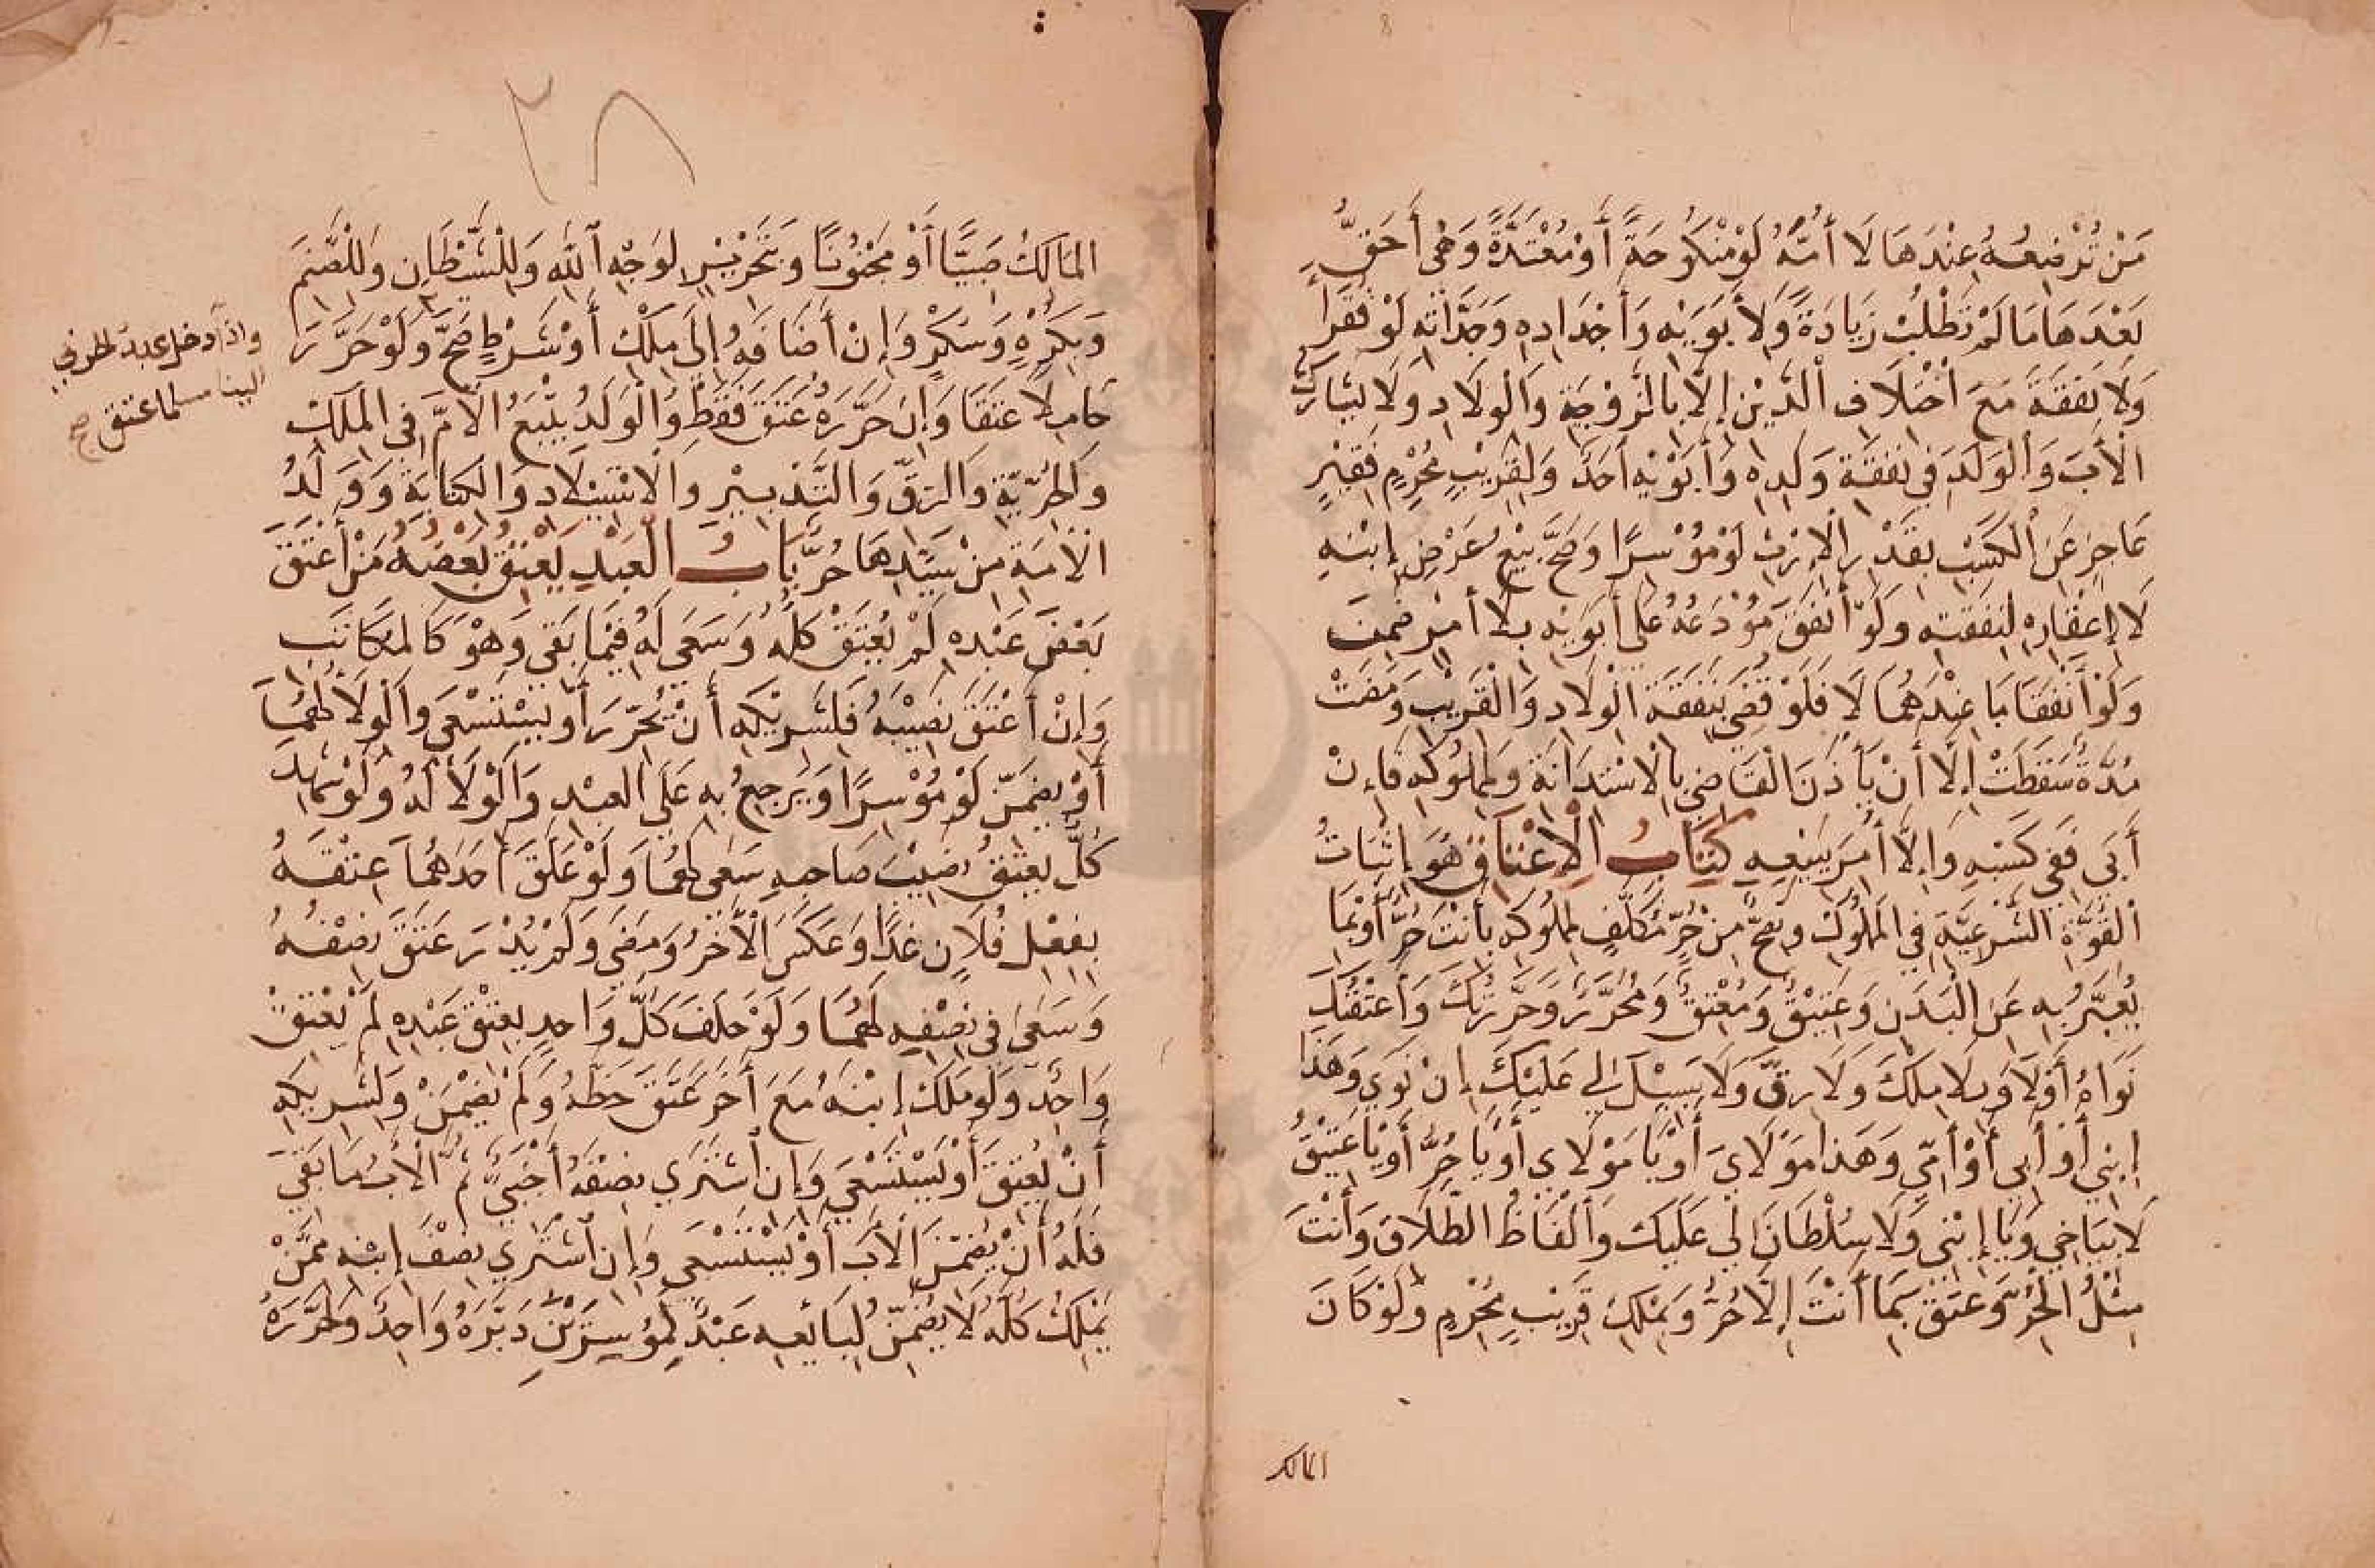 مَنْ تُرْضِعُهُ عِنْدَهَا لَا أُمَّهُ لَوْ مَنْكُوحَةً أَوْ مُعْتَدَّةً وَهِيَ أَحَقُّ
بَعْدَهَا مَا لَمْ تَطْلُبْ زِيَادَةً وَلِأَبَوَيْهِ وَأَجْدَادِهِ وَجَدَّاتِهِ لَوْ فُقَرَاءَ
وَلَا نَفَقَةَ مَعَ اخْتِلَافِ الدِّيْنِ إِلَّا بِالزَّوْجِيَّةِ وَالْوِلَادِ وَلَا يُشَارِكُ
الْأَبَ وَالْوَلَدَ فِي نَفَقَةِ وَلَدِهِ وَأَبَوَيْهِ أَحَدٌ وَلِقَرِيْبٍ مُحْرِمٍ فَقِيْرٍ
عَاجِزٍ عَنِ الْكَسْبِ بِقَدْرِ الْإِرْثِ لَوْ مُوْسِرًا وَصَحَّ بَيْعُ عَرَضِ إِبْنِهِ
لَا إِعْقَارِهِ لِنَفَقَتِهِ وَلَوْ أَنْفَقَ مُوْدَعُهُ عَلَى أَبَوَيْهِ بِلَا أَمْرٍ ضَمِنَ
وَلَوْ أَنْفَقَا مَا عِنْدَهُمَا لَا فَلَوْ قُضِيَ بِنَفَقَةِ الْوِلَادِ وَالْقَرِيْبِ وَمَضَتْ
مُدَّةٌ سَقَطَتْ إِلَّا أَنْ يَأْذَنَ الْقَاضِي بِالْاسْتِدَانَةِ وَلِمَمْلُوكِهِ فَإِنْ
أَبَى فَفِي كَسْبِهِ وَإِلَّا أُمِرَ بِبَيْعِهِ كِتَابُ الْإِعْتَاقِ هُوَ إِثْبَاتُ
الْقُوَّةِ الشَّرْعِيَّةِ فِي الْمَمْلُوكِ وَيَصِحُّ مِنْ حُرٍّ مُكَلَّفٍ لِمَمْلُوكِهِ بِأَنْتَ حُرٌّ أَوْ بِمَا
يُعَبَّرُ بِهِ عَنِ الْبَدَنِ وَعَتِيْقٌ وَمُعْتَقٌ وَمُحَرَّرٌ وَحَرَّرْتُكَ وَأَعْتَقْتُكَ
نَوَاهُ أَوْ لَا وَبِلَا مِلْكَ وَلَا رِقَّ وَلَا سَبِيْلَ لِي عَلَيْكَ إِنْ نَوَى وَهَذَا
إِبْنِي أَوْ أَبِي أَوْ أُمِّي وَهَذَا مَوْلَايَ أَوْ يَا مَوْلَايَ أَوْ يَا حُرُّ أَوْ يَا عَتِيْقُ
لَا بِيَا أَخِي وَيَا إِبْنِي وَلَا سُلْطَانَ لِي عَلَيْكَ وَأَلْفَاظُ الطَّلَاقِ وَأَنْتَ
مِثْلُ الْحُرِّ وَعَتَقَ بِمَا أَنْتَ إِلَّا حُرٌّ وَبِمِلْكِ قَرِيْبٍ مُحْرِمٍ وَلَوْ كَانَ
المالك
٢٨
الْمَالِكُ صَبِيًّا أَوْ مَجْنُوْنًا وَبِتَحْرِيْرٍ لِوَجْهِ اللهِ وَلِلشَّيْطَانِ وَلِلصَّنَمِ
وَبِكُرْهٍ وَسُكْرٍ وَإِنْ أَضَافَهُ إِلَى مِلْكٍ أَوْ شَرْطٍ صَحَّ وَلَوْ حَرَّرَ
حَامِلًا عَتَقَا وَإِنْ حَرَّرَهُ عَتَقَ فَقَطْ وَالْوَلَدُ يَتْبَعُ الْأُمَّ فِي الْمِلْكِ
وَالْحُرِّيَّةِ وَالرِّقِّ وَالتَّدْبِيْرِ وَالْاسْتِيْلَادِ وَالْكِتَابَةِ وَوَلَدُ
الْأَمَةِ مِنْ سَيِّدِهَا حُرٌّ بَابُ الْعَبْدِ يُعْتَقُ بَعْضُهُ مَنْ أَعْتَقَ
بَعْضَ عَبْدِهِ لَمْ يُعْتَقْ كُلُّهُ وَسَعَى لَهُ فِيْمَا بَقِيَ وَهُوَ كَالْمُكَاتَبِ
وَإِنْ أَعْتَقَ نَصِيْبَهُ فَلِشَرِيْكِهِ أَنْ يُحَرِّرَ أَوْ يَسْتَسْعِيَ وَالْوَلَاءُ لَهُمَا
أَوْ يُضَمِّنَ لَوْ مُوْسِرًا وَيَرْجِعُ بِهِ عَلَى الْعَبْدِ وَالْوَلَاءُ لَهُ وَلَوْ شَهِدَ
كُلٌّ بِعِتْقِ نَصِيْبِ صَاحِبِهِ سَعَى لَهُمَا وَلَوْ عَلَّقَ أَحَدُهُمَا عِتْقَهُ
بِفِعْلِ فُلَانٍ غَدًا وَعَكَسَ الْآخَرُ وَمَضَى وَلَمْ يُدْرَ عَتَقَ نِصْفُهُ
وَسَعَى فِي نِصْفِهِ لَهُمَا وَلَوْ حَلَفَ كُلُّ وَاحِدٍ بِعِتْقِ عَبْدِهِ لَمْ يُعْتَقْ
وَاحِدٌ وَلَوْ مَلَكَ إِبْنَهُ مَعَ آخَرَ عَتَقَ حَظُّهُ وَلَمْ يَضْمَنْ وَلِشَرِيْكِهِ
أَنْ يُعْتِقَ أَوْ يَسْتَسْعِيَ وَإِنِ اشْتَرَى نِصْفَهُ أَجْنَبِيٌّ ثُمَّ الْأَبُ مَا بَقِيَ
فَلَهُ أَنْ يُضَمِّنَ الْأَبَ أَوْ يَسْتَسْعِيَ وَإِنِ اشْتَرَى نِصْفَ إِبْنِهِ مِمَّنْ
يَمْلِكُ كُلَّهُ لَا يُضَمَّنُ لِبَائِعِهِ عَبْدٌ لِمُوْسِرَيْنِ دَبَّرَهُ وَاحِدٌ وَحَرَّرَهُ
واذا دخل عبد الحربي
الينا مسلما عتق صح